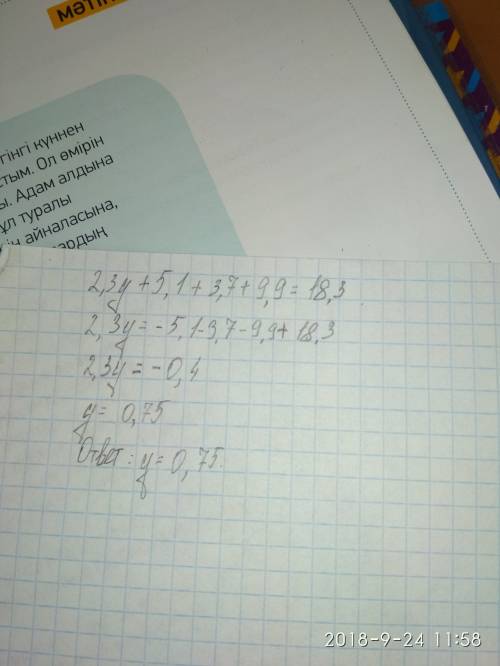 МӘТІН
гінгі күннен
стым. Ол өмірін
ы. Адам алдына
ұл туралы
ін айналасына,
ардың
2,3y + 5,1 + 3,7 + 9,9 = 18,3
2,3y = -5,1-3,7-9,9+18,3
2,3y = -0,4
y = 0,75
Ответ: y = 0,75.
2018-9-24 11:58